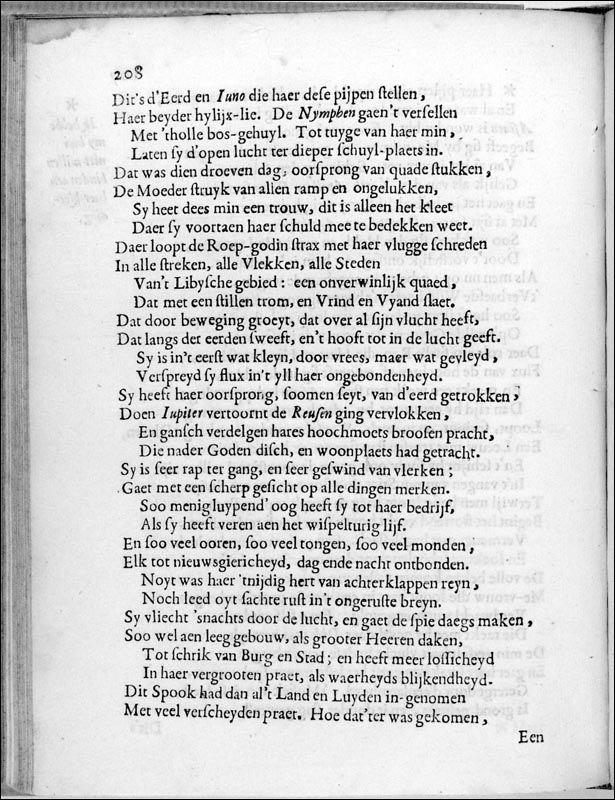 208
Dit's d'Eerd en Iuno die haer dese pijpen stellen,
Haer beyder hylijx-lie. De Nymphen gaen't versellen
Met 'tholle bos-gehuyl. Tot tuyge van haer min,
Laten sy d'open lucht ter dieper schuyl-plaets in.
Dat was dien droeven dag, oorsprong van quade stukken,
De Moeder struyk van allen ramp en ongelukken,
Sy heet dees min een trouw, dit is alleen het kleet
Daer sy voortaen haer schuld mee te bedekken weet.
Daer loopt de Roep-godin strax met haer vlugge schreden
In alle streken, alle Vlekken, alle Steden
Van't Libysche gebied: een onverwinlijk quaed,
Dat met een stillen trom, en Vrind en Vyand slaet.
Dat door beweging groeyt, dat over al sijn vlucht heeft,
Dat langs der eerden sweeft, en't hooft tot in de lucht geeft.
Sy is in't eerst wat kleyn, door vrees, maer wat gevleyd,
Verspreyd sy flux in't yll haer ongebondenheyd.
Sy heeft haer oorsprong, soomen seyt, van d'eerd getrokken,
Doen Iupiter vertoornt de Reusen ging vervlokken,
En gansch verdelgen hares hoochmoets broosen pracht,
Die nader Goden disch, en woonplaets had getracht.
Sy is seer rap ter gang, en seer geswind van vlerken;
Gaet met een scherp gesicht op alle dingen merken.
Soo menig luypend' oog heeft sy tot haer bedrijf,
Als sy heeft veren aen het wispelturig lijf.
En soo veel ooren, soo veel tongen, soo veel monden,
Elk tot nieuwsgiericheyd, dag ende nacht ontbonden.
Noyt was haer 'tnijdig hert van achterklappen reyn,
Noch leed oyt sachte rust in't ongeruste breyn.
Sy vliecht 'snachts door de lucht, en gaet de spie daegs maken,
Soo wel aen leeg gebouw, als grooter Heeren daken,
Tot schrik van Burg en Stad; en heeft meer lossicheyd
In haer vergrooten praet, als waerheyds blijkendheyd.
Dit Spook had dan al't Land en Luyden in-genomen
Met veel verscheyden praet. Hoe dat'ter was gekomen,
Een